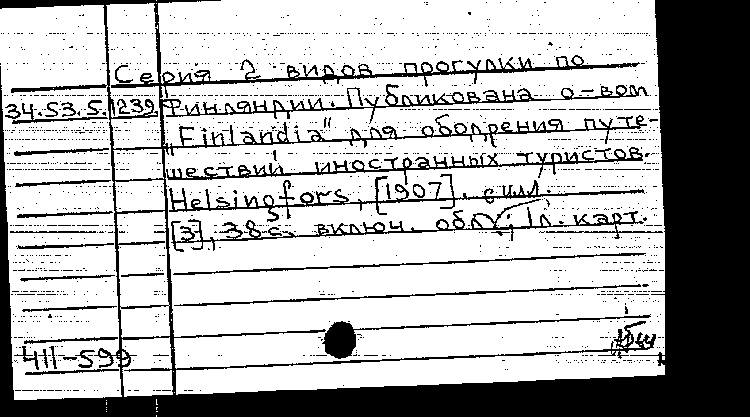 Серия 2 видов прогулки по
34.53.5.1239 Финляндии. Публикована о-вом
„Finlandia" для ободрения путе-
шествий иностранных туристов.
Helsingfors, [1907]. с илл.
[3], 38 с. включ. обл.; 1 л. карт.
411-599